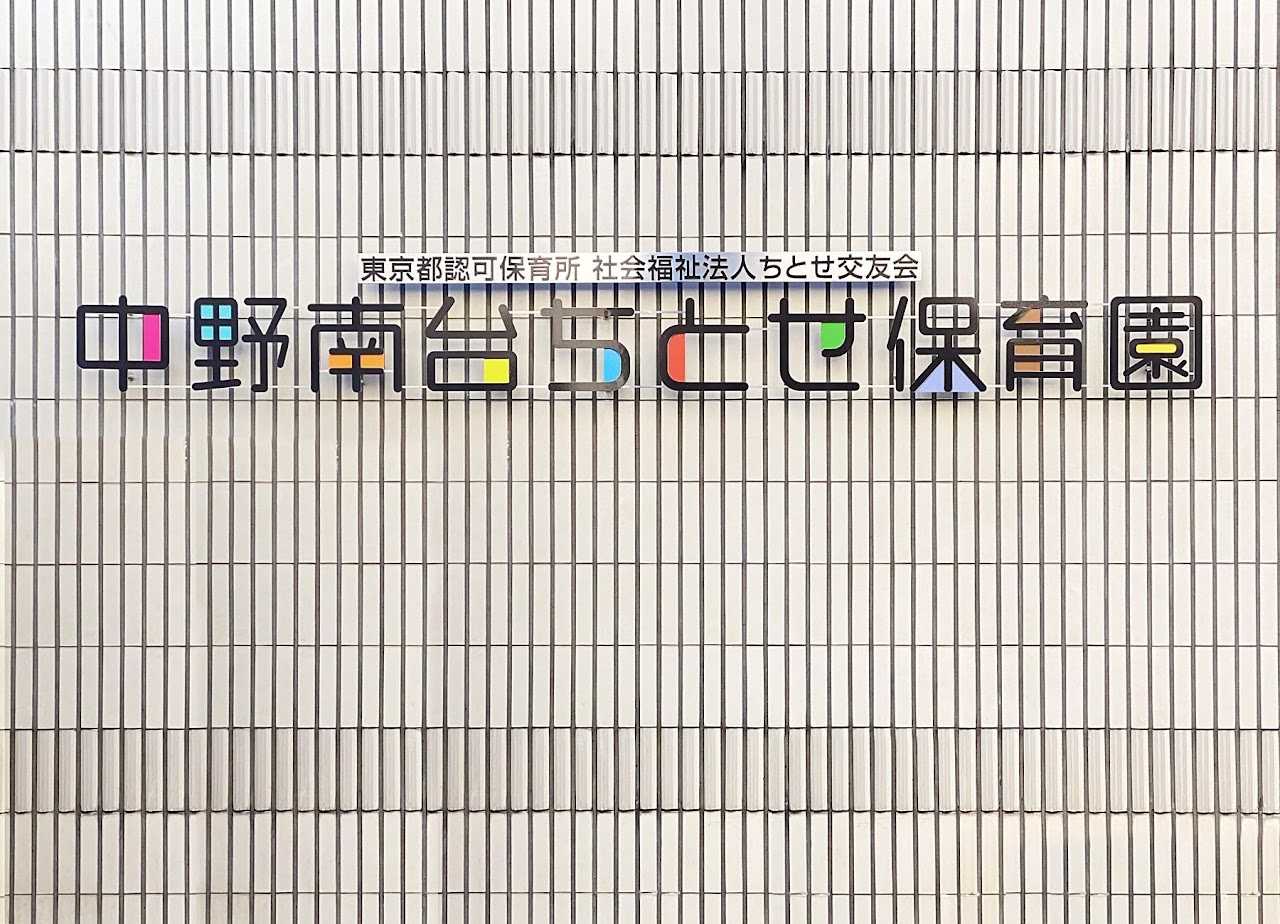 東京都認可保育所 社会福祉法人ちとせ交友会
中野南台ちとせ保育園